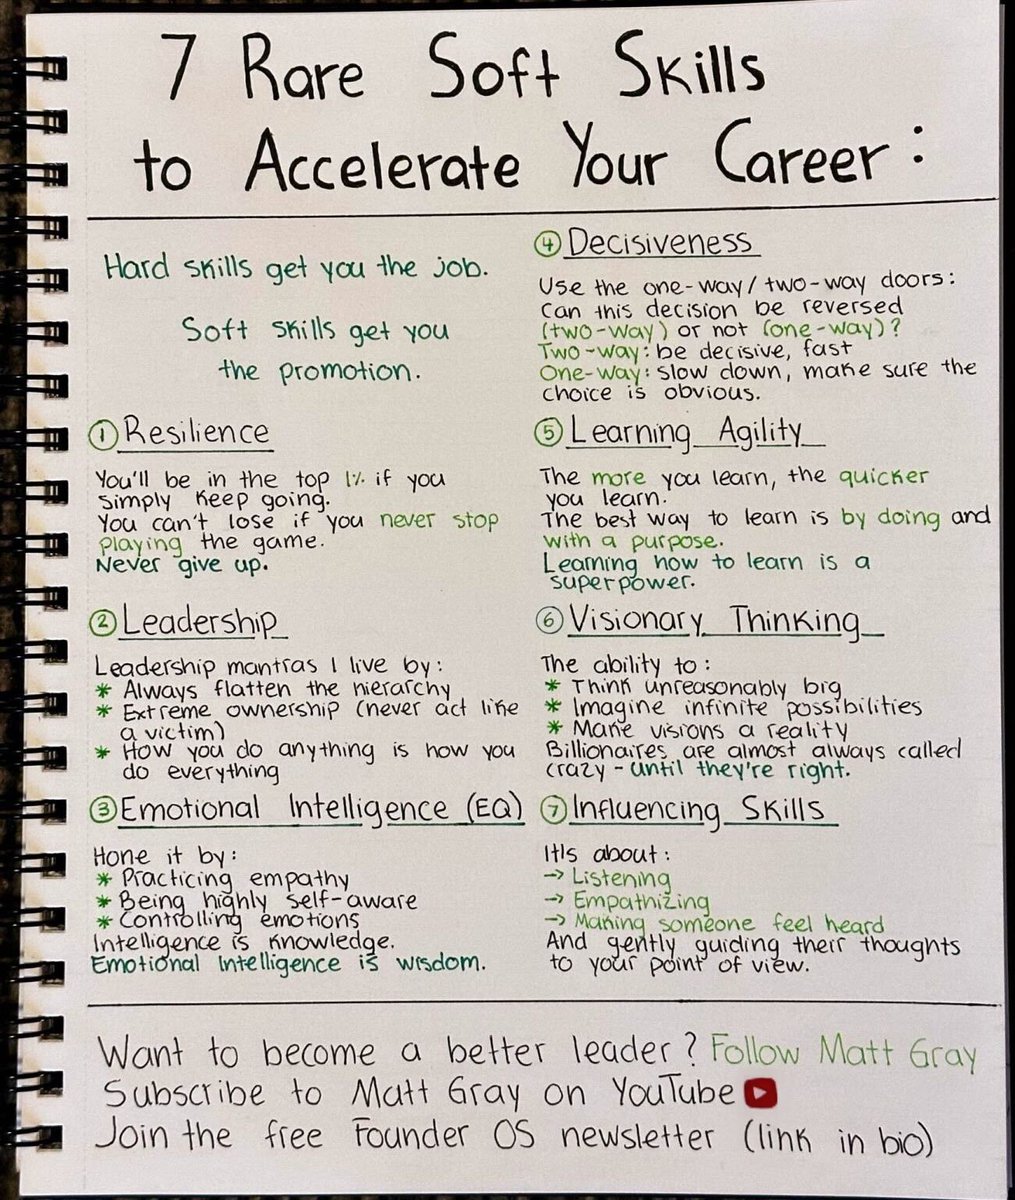 7 Rare Soft Skills
to Accelerate Your Career:
Hard skills get you the job.
Soft skills get you
the promotion.
① Resilience
You'll be in the top 1% if you
simply keep going.
You can't lose if you never stop
playing the game.
Never give up.
② Leadership
Leadership mantras I live by:
* Always flatten the hierarchy
* Extreme ownership (never act like
a victim)
* How you do anything is how you
do everything
③ Emotional Intelligence (EQ)
Hone it by:
* Practicing empathy
* Being highly self-aware
* Controlling emotions
Intelligence is knowledge.
Emotional Intelligence is wisdom.
④ Decisiveness
Use the one-way/two-way doors:
Can this decision be reversed
(two-way) or not (one-way)?
Two-way: be decisive, fast
One-way: slow down, make sure the
choice is obvious.
⑤ Learning Agility
The more you learn, the quicker
you learn.
The best way to learn is by doing and
with a purpose.
Learning how to learn is a
superpower.
⑥ Visionary Thinking
The ability to:
* Think unreasonably big
* Imagine infinite possibilities
* Make visions a reality
Billionaires are almost always called
crazy - until they're right.
⑦ Influencing Skills
It's about:
→ Listening
→ Empathizing
→ Making someone feel heard
And gently guiding their thoughts
to your point of view.
Want to become a better leader? Follow Matt Gray
Subscribe to Matt Gray on YouTube
Join the free Founder OS newsletter (link in bio)